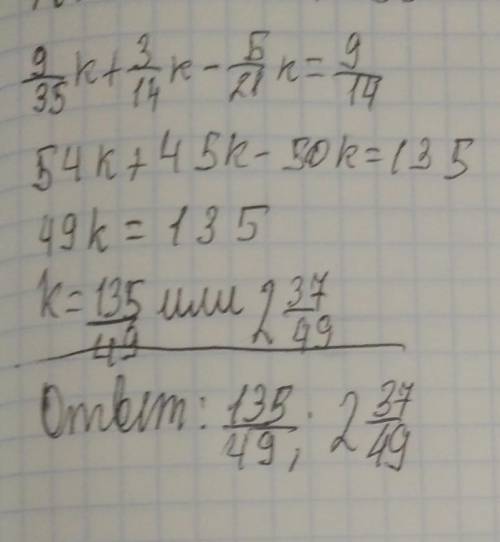 9/35 k + 3/14 k - 5/21 k = 9/14
54k + 45k - 50k = 135
49k = 135
k = 135/49 или 2 37/49
Ответ: 135/49; 2 37/49